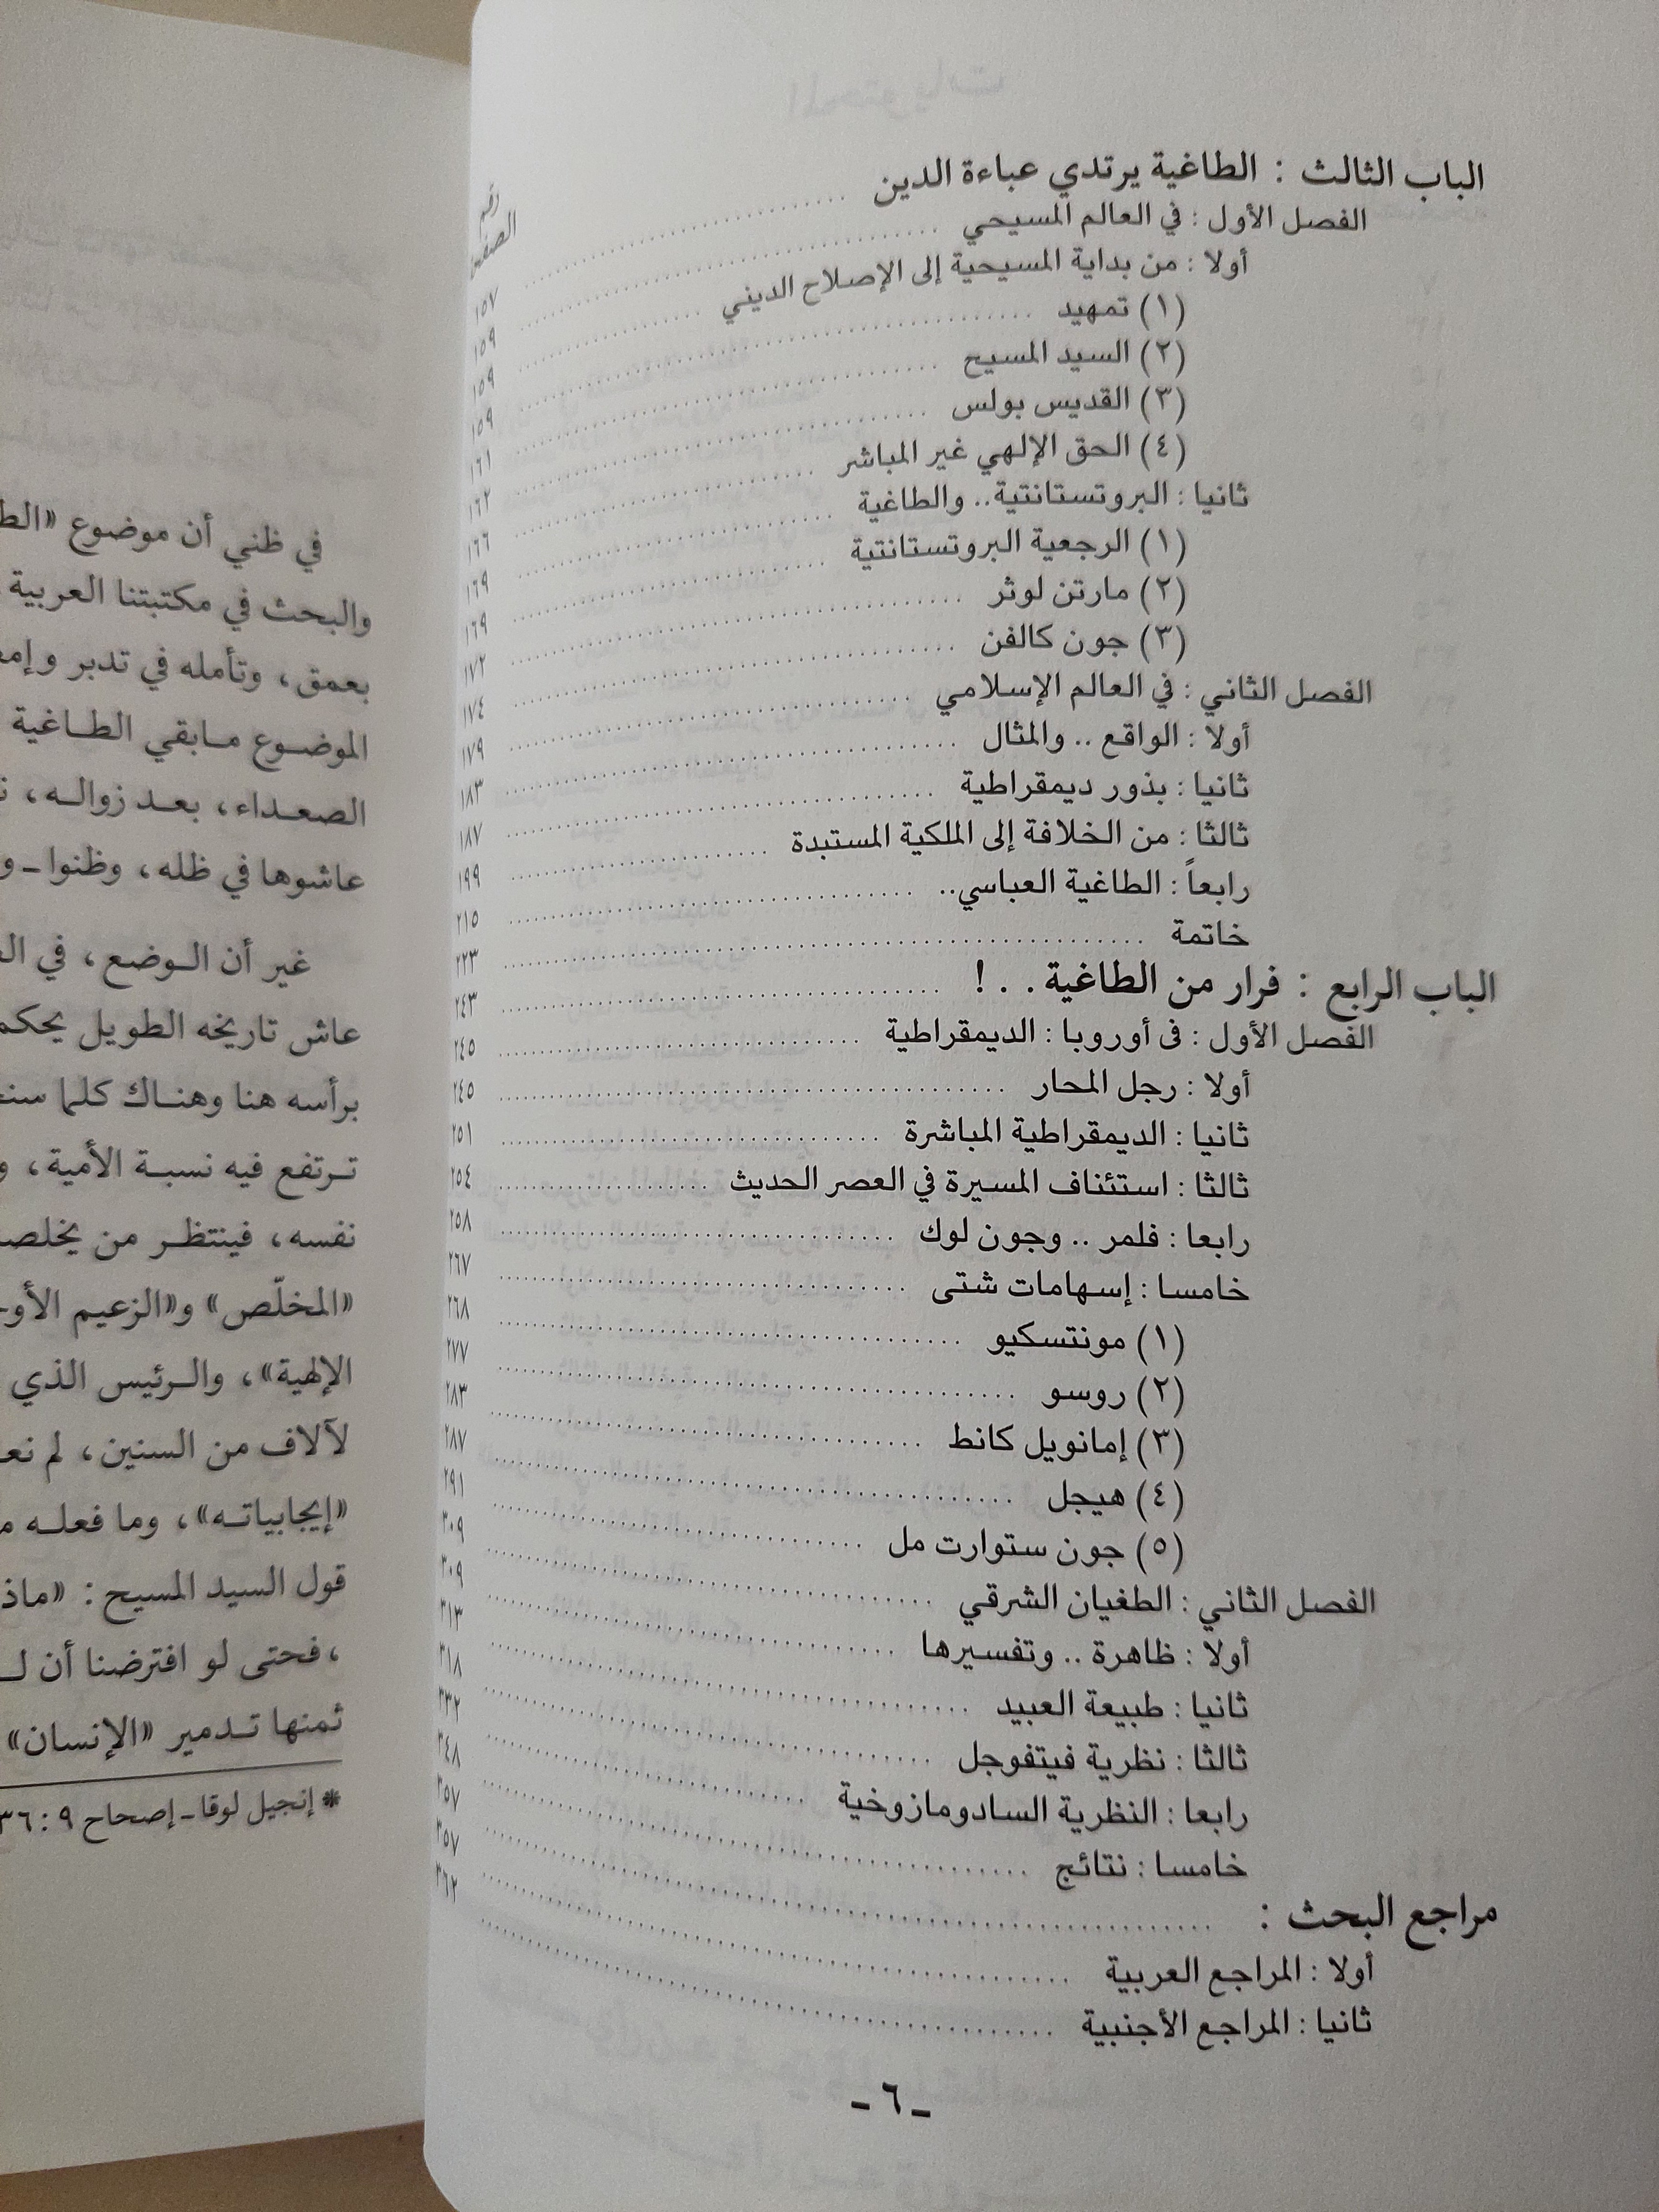 رقم
الصفحة
الباب الثالث : الطاغية يرتدي عباءة الدين ........ ١٥٧
الفصل الأول : في العالم المسيحي ........ ١٥٩
أولا : من بداية المسيحية إلى الإصلاح الديني ........ ١٥٩
(١) تمهيد ........ ١٥٩
(٢) السيد المسيح ........ ١٦١
(٣) القديس بولس ........ ١٦٢
(٤) الحق الإلهي غير المباشر ........ ١٦٦
ثانيا : البروتستانتية.. والطاغية ........ ١٦٩
(١) الرجعية البروتستانتية ........ ١٦٩
(٢) مارتن لوثر ........ ١٧٢
(٣) جون كالفن ........ ١٧٤
الفصل الثاني : في العالم الإسلامي ........ ١٧٩
أولا : الواقع .. والمثال ........ ١٨٣
ثانيا : بذور ديمقراطية ........ ١٨٧
ثالثا : من الخلافة إلى الملكية المستبدة ........ ١٩٩
رابعاً : الطاغية العباسي.. ........ ٢١٥
خاتمة ........ ٢٢٣
الباب الرابع : فرار من الطاغية . . ! ........ ٢٤٣
الفصل الأول : فى أوروبا : الديمقراطية ........ ٢٤٥
أولا : رجل المحار ........ ٢٤٥
ثانيا : الديمقراطية المباشرة ........ ٢٥١
ثالثا : استئناف المسيرة في العصر الحديث ........ ٢٥٤
رابعا : فلمر .. وجون لوك ........ ٢٥٨
خامسا : إسهامات شتى ........ ٢٦٧
(١) مونتسكيو ........ ٢٦٨
(٢) روسو ........ ٢٧٧
(٣) إمانويل كانط ........ ٢٨٣
(٤) هيجل ........ ٢٨٧
(٥) جون ستوارت مل ........ ٢٩١
الفصل الثاني : الطغيان الشرقي ........ ٣٠٩
أولا : ظاهرة .. وتفسيرها ........ ٣٠٩
ثانيا : طبيعة العبيد ........ ٣١٣
ثالثا : نظرية فيتفوجل ........ ٣١٨
رابعا : النظرية السادومازوخية ........ ٣٣٢
خامسا : نتائج ........ ٣٤٨
مراجع البحث : ........ ٣٥٧
أولا : المراجع العربية ........ ٣٥٧
ثانيا : المراجع الأجنبية ........ ٣٦٢
ـ ٦ ـ
في ظني أن موضوع
والبحث في مكتبتنا العربية
بعمق، وتأمله في تدبر
الموضوع مابقي الطاغية
الصعداء، بعد زواله،
عاشوها في ظله، وظنوا ـ
غير أن الوضع، في
عاش تاريخه الطويل يحكمه
برأسه هنا وهناك كلما
ترتفع فيه نسبة الأمية،
نفسه، فينتظر من
«المخلّص» و«الزعيم
الإلهية»، والرئيس الذي
لآلاف من السنين، لم
«إيجابياته»، وما فعله
قول السيد المسيح :
، فحتى لو افترضنا أن
ثمنها تدمير «الإنسان»
* إنجيل لوقا ـ إصحاح ٩ : ٣٦